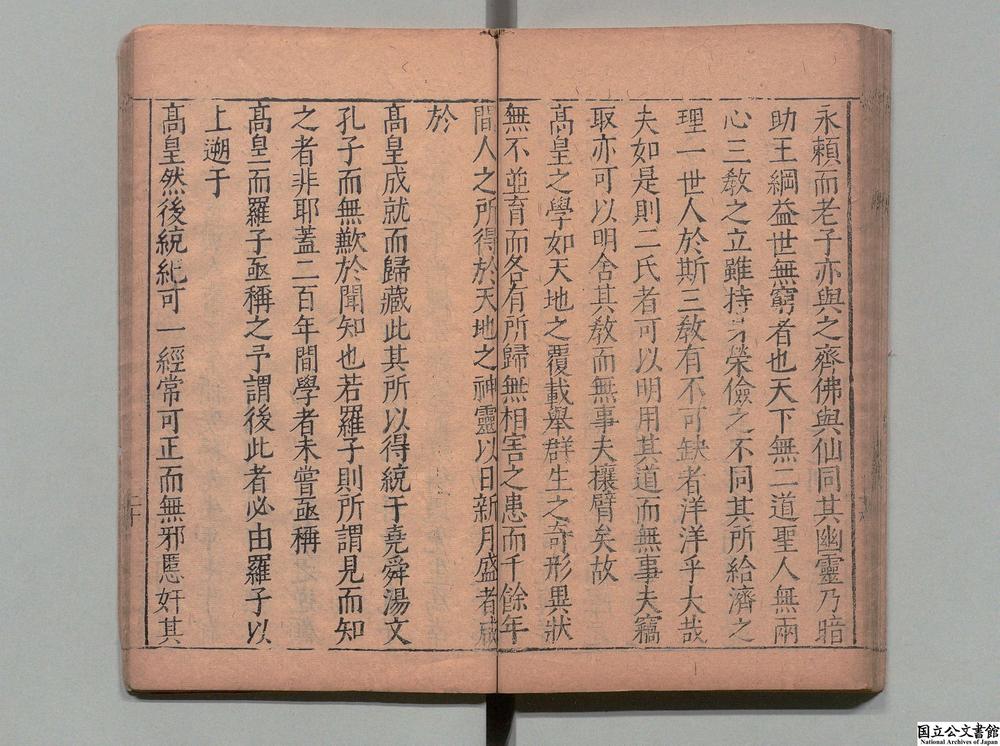 永賴而老子亦與之齊佛與仙同其幽靈乃暗
助王綱益世無窮者也天下無二道聖人無兩
心三敎之立雖持身榮儉之不同其所給濟之
理一世人於斯三敎有不可缺者洋洋乎大哉
夫如是則二氏者可以明用其道而無事夫竊
取亦可以明舍其敎而無事夫攘臂矣故
高皇之學如天地之覆載舉群生之奇形異狀
無不並育而各有所歸無相害之患而千餘年
間人之所得於天地之神靈以日新月盛者咸
於
高皇成就而歸藏此其所以得統于堯舜湯文
孔子而無歉於聞知也若羅子則所謂見而知
之者非耶蓋二百年間學者未嘗亟稱
高皇而羅子亟稱之予謂後此者必由羅子以
上遡于
高皇然後統紀可一經常可正而無邪慝奸其
二十
国立公文書館
National Archives of Japan